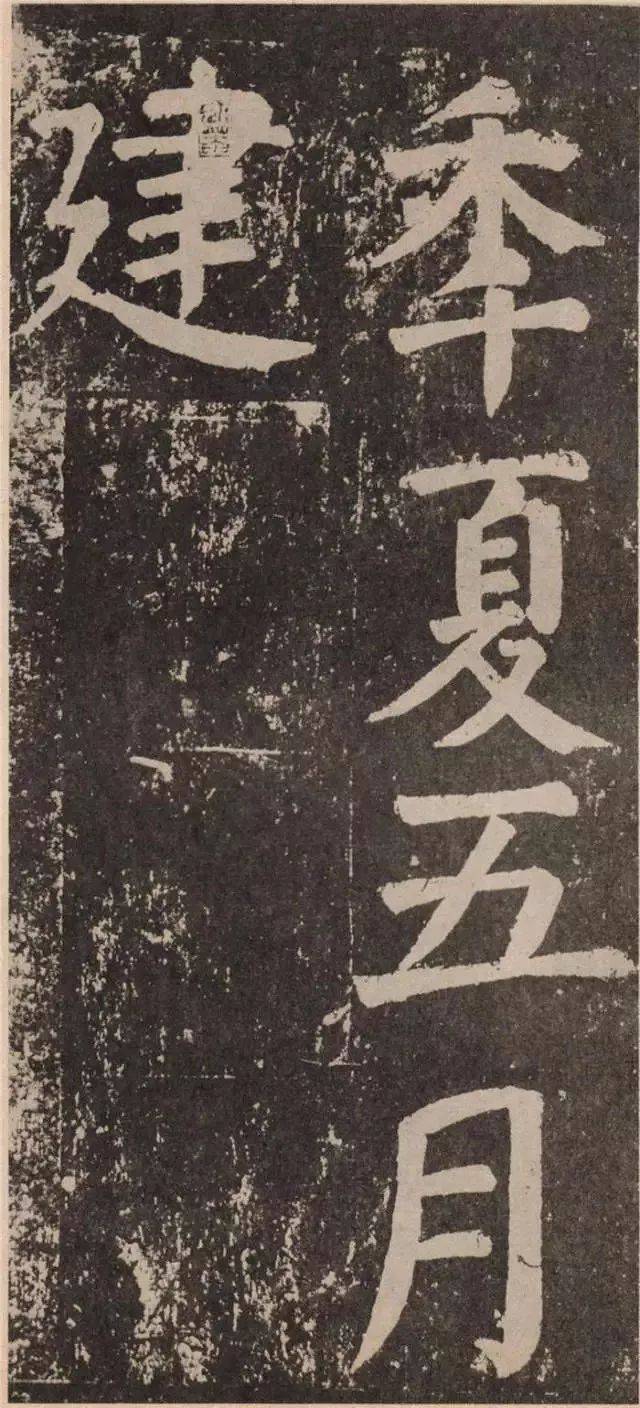 秊夏五月
建